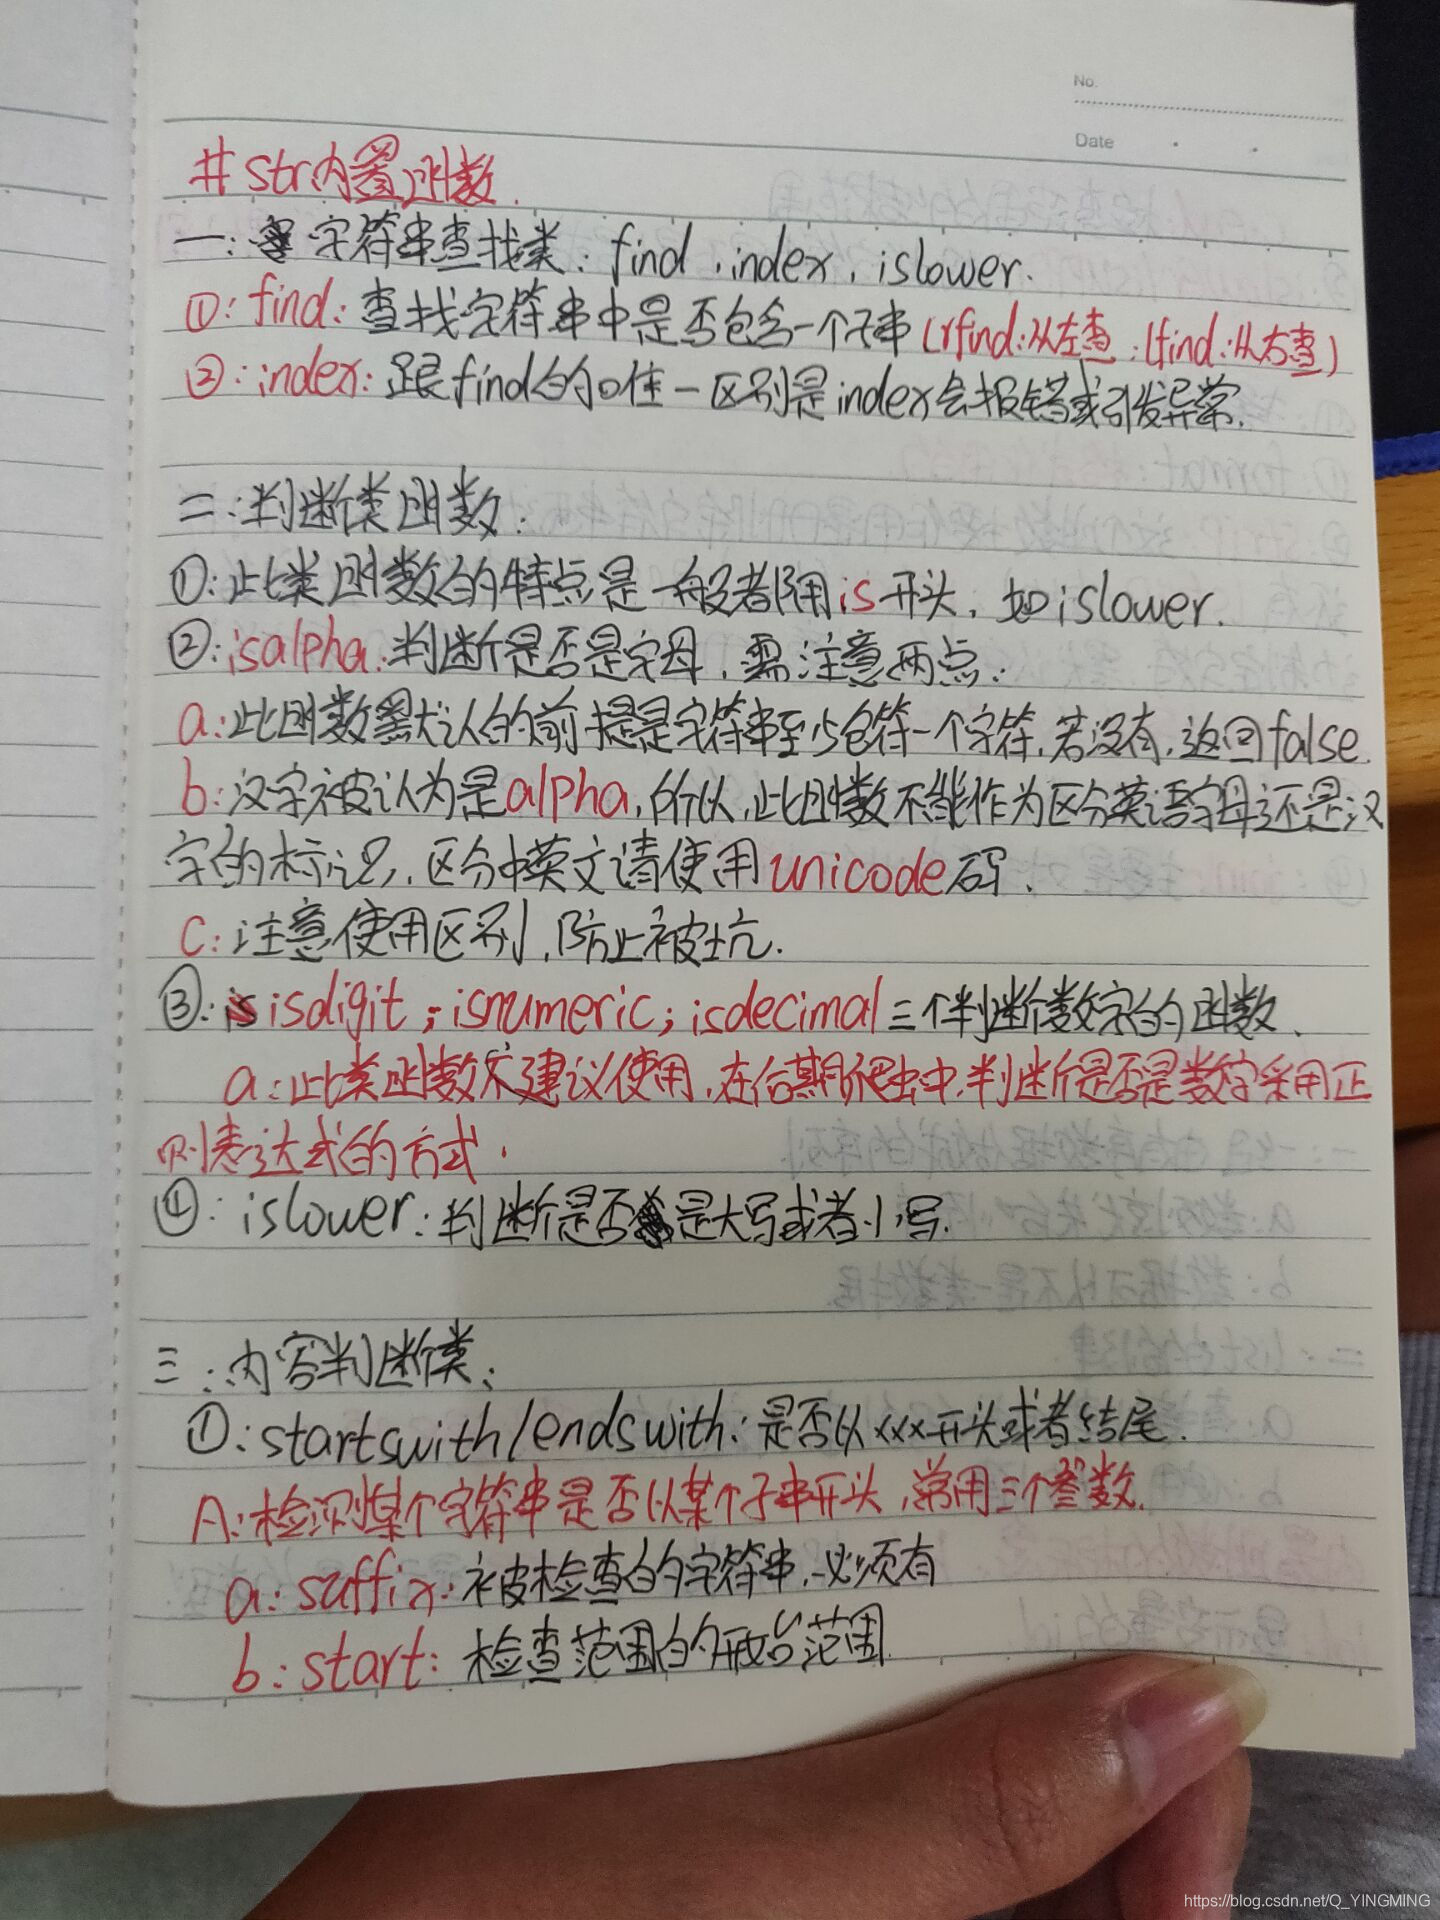 No.
Date
#str内置函数.
一:字符串查找类:find,index,islower.
①:find:查找字符串中是否包含一个子串(rfind:从左查;lfind:从右查)
②:index:跟find的唯一区别是index会报错或引发异常.
二:判断类函数:
①:此类函数的特点是一般者都用is开头,如islower.
②:isalpha:判断是否是字母,需注意两点:
a:此函数默认的前提是字符串至少包符一个字符,若没有,返回false.
b:汉字被认为是alpha,所以,此函数不能作为区分英语字母还是汉
字的标识,区分中英文请使用unicode码.
c:注意使用区别,防止被坑.
③:isdigit;isnumeric;isdecimal三个判断数字的函数.
a:此类函数不建议使用,在后期爬虫中,判断是否是数字采用正
则表达式的方式.
④:islower:判断是否是大写或者小写.
三:内容判断类:
①:startswith/endswith:是否以xxx开头或者结尾.
A:检测某个字符串是否以某个子串开头,常用三个参数.
a:suffix:被检查的字符串,必须有
b:start:检查范围的开始范围
https://blog.csdn.net/Q_YINGMING